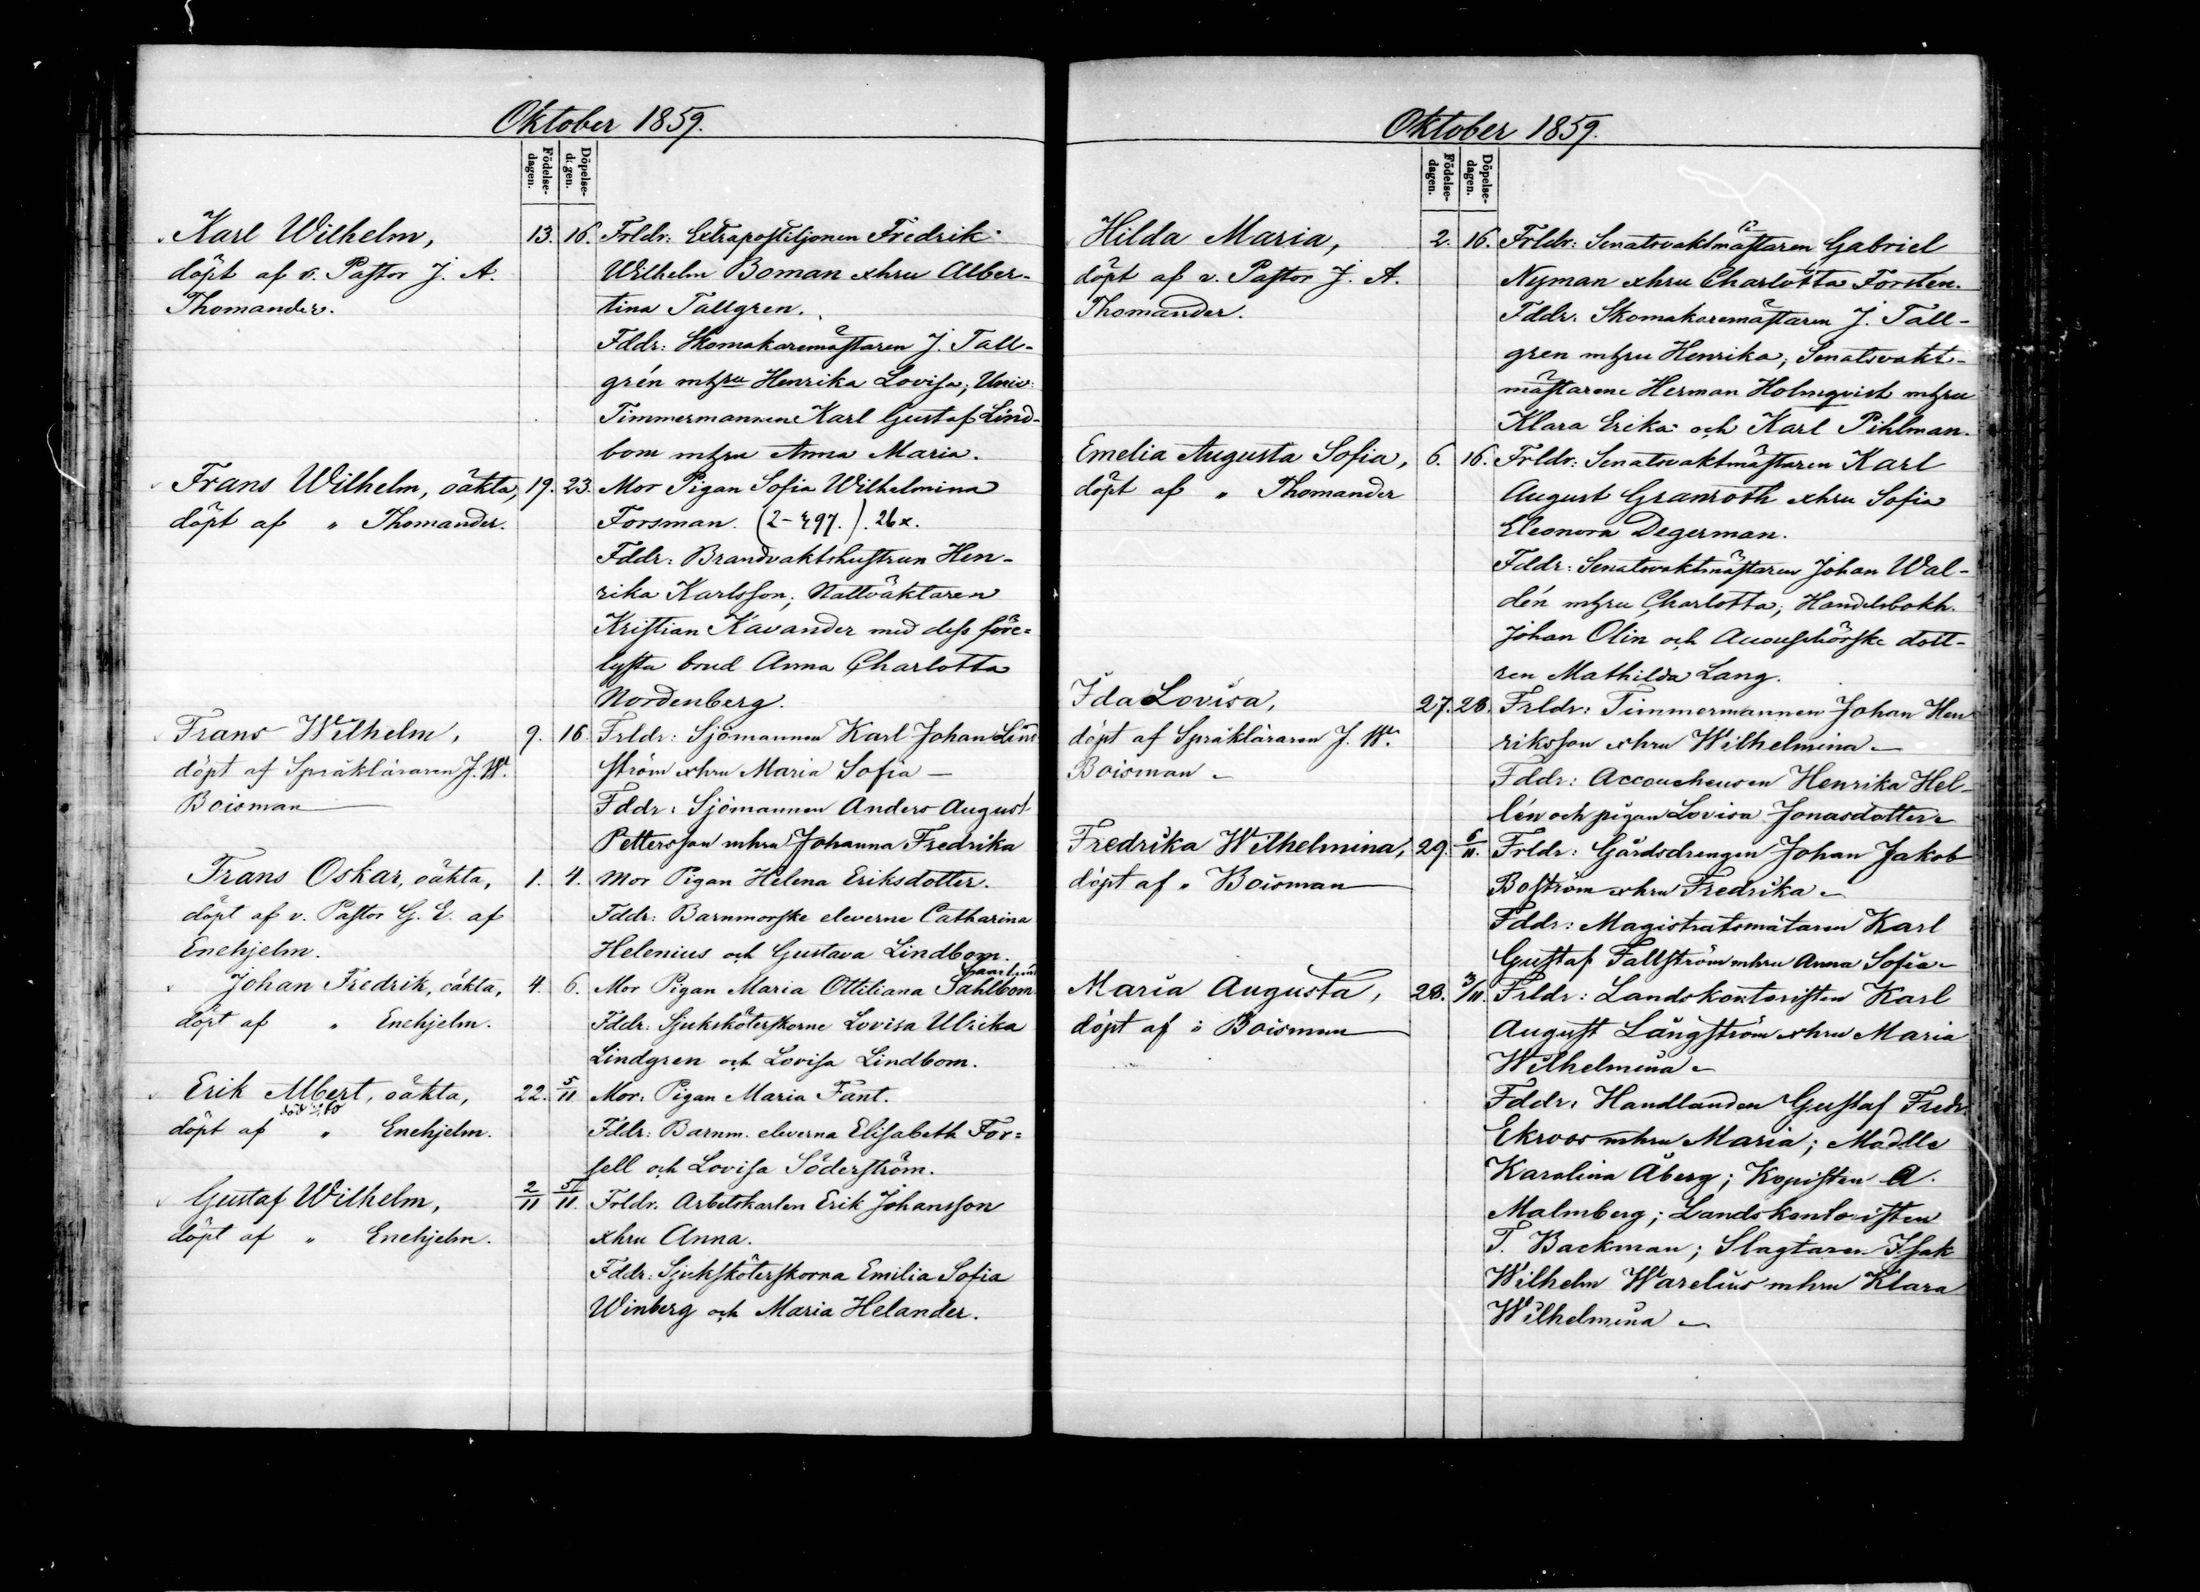 Oktober 1859.
Födelse-dagen. Döpelse-dagen.
Karl Wilhelm, 13. 16. Frldr: Extrapostiljonen Fredrik
döpt af v. Pastor J. A. Wilhelm Boman xhru Alber-
Thomander. tina Tallgren.
Fddr: Skomakaremästaren J. Tall-
grén mhru Henrika Lovisa; Univ:
Timmermannen Karl Gustaf Lind-
bom mhru Anna Maria.
Frans Wilhelm, oäkta, 19. 23. Mor Pigan Sofia Wilhelmina
döpt af " Thomander. Forsman. (2-497.). 26x.
Fddr: Brandvaktshustrun Hen-
rika Karlsson; Nattväktaren
Kristian Kavander med dess före-
lysta brud Anna Charlotta
Nordenberg.
Frans Wilhelm, 9. 16. Frldr: Sjömannen Karl Johan Lind
döpt af Språkläraren J. W. ström xhru Maria Sofia —
Boisman — Fddr: Sjömannen Anders August
Pettersson mhru Johanna Fredrika
Frans Oskar, oäkta, 1. 4. Mor Pigan Helena Eriksdotter.
döpt af v. Pastor G. E. af Fddr: Barnmorske eleverne Catharina
Enehjelm. Helenius och Gustava Lindbom.
Johan Fredrik, oäkta, 4. 6. Mor Pigan Maria Ottiliana Sahlbom
döpt af " Enehjelm. Fddr: Sjuksköterskorne Lovisa Ulrika
Lindgren och Lovisa Lindbom.
Erik Albert, oäkta, 22. 5/11 Mor: Pigan Maria Fant.
död
döpt af " Enehjelm. Fddr: Barnm. eleverna Elisabeth For=
sell och Lovisa Söderström.
Gustaf Wilhelm, 2/11 5/11. Frldr. Arbetskarlen Erik Johansson
döpt af " Enehjelm. xhru Anna.
Fddr: Sjuksköterskorna Emilia Sofia
Winberg och Maria Helander.
Oktober 1859.
Födelse-dagen. Döpelse-dagen.
Hilda Maria, 2. 16. Frldr: Senatsvaktmästaren Gabriel
döpt af v. Pastor J. A. Nyman xhru Charlotta Forstén.
Thomander. Fddr. Skomakaremästaren J. Tall-
gren mhru Henrika; Senatsvakt-
mästarene Herman Holmqvist mhru
Klara Erika och Karl Pihlman.
Emelia Augusta Sofia, 6. 16. Frldr: Senatsvaktmästaren Karl
döpt af " Thomander August Granroth xhru Sofia
Eleonora Degerman.
Fddr: Senatsvaktmästaren Johan Wal-
dén mhru Charlotta; Handelsbokh.
Johan Olin och dott-
ren Mathilda Lang.
Ida Lovisa, 27. 28. Frldr: Timmermannen Johan Hen
döpt af Språkläraren J. W. riksson xhru Wilhelmina —
Boisman — Fddr: Accoucheusen Henrika Hel-
lén och pigan Lovisa Jonasdotter —
Fredrika Wilhelmina, 29. 6/11. Frldr: Gårdsdrengen Johan Jakob
döpt af " Boisman — Boström xhru Fredrika —
Fddr: Magistratsmätaren Karl
Gustaf Fallström mhru Anna Sofia —
Maria Augusta, 28. 3/11. Frldr: Landskontoristen Karl
döpt af " Boisman — August Långström xhru Maria
Wilhelmina —
Fddr: Handlanden Gustaf Fredr.
Ekroos mhru Maria; Madlle
Karolina Åberg; Kopisten A.
Malmberg; Landskontoristen
T. Backman; Slagtaren Isak
Wilhelm Warelius mhru Klara
Wilhelmina —